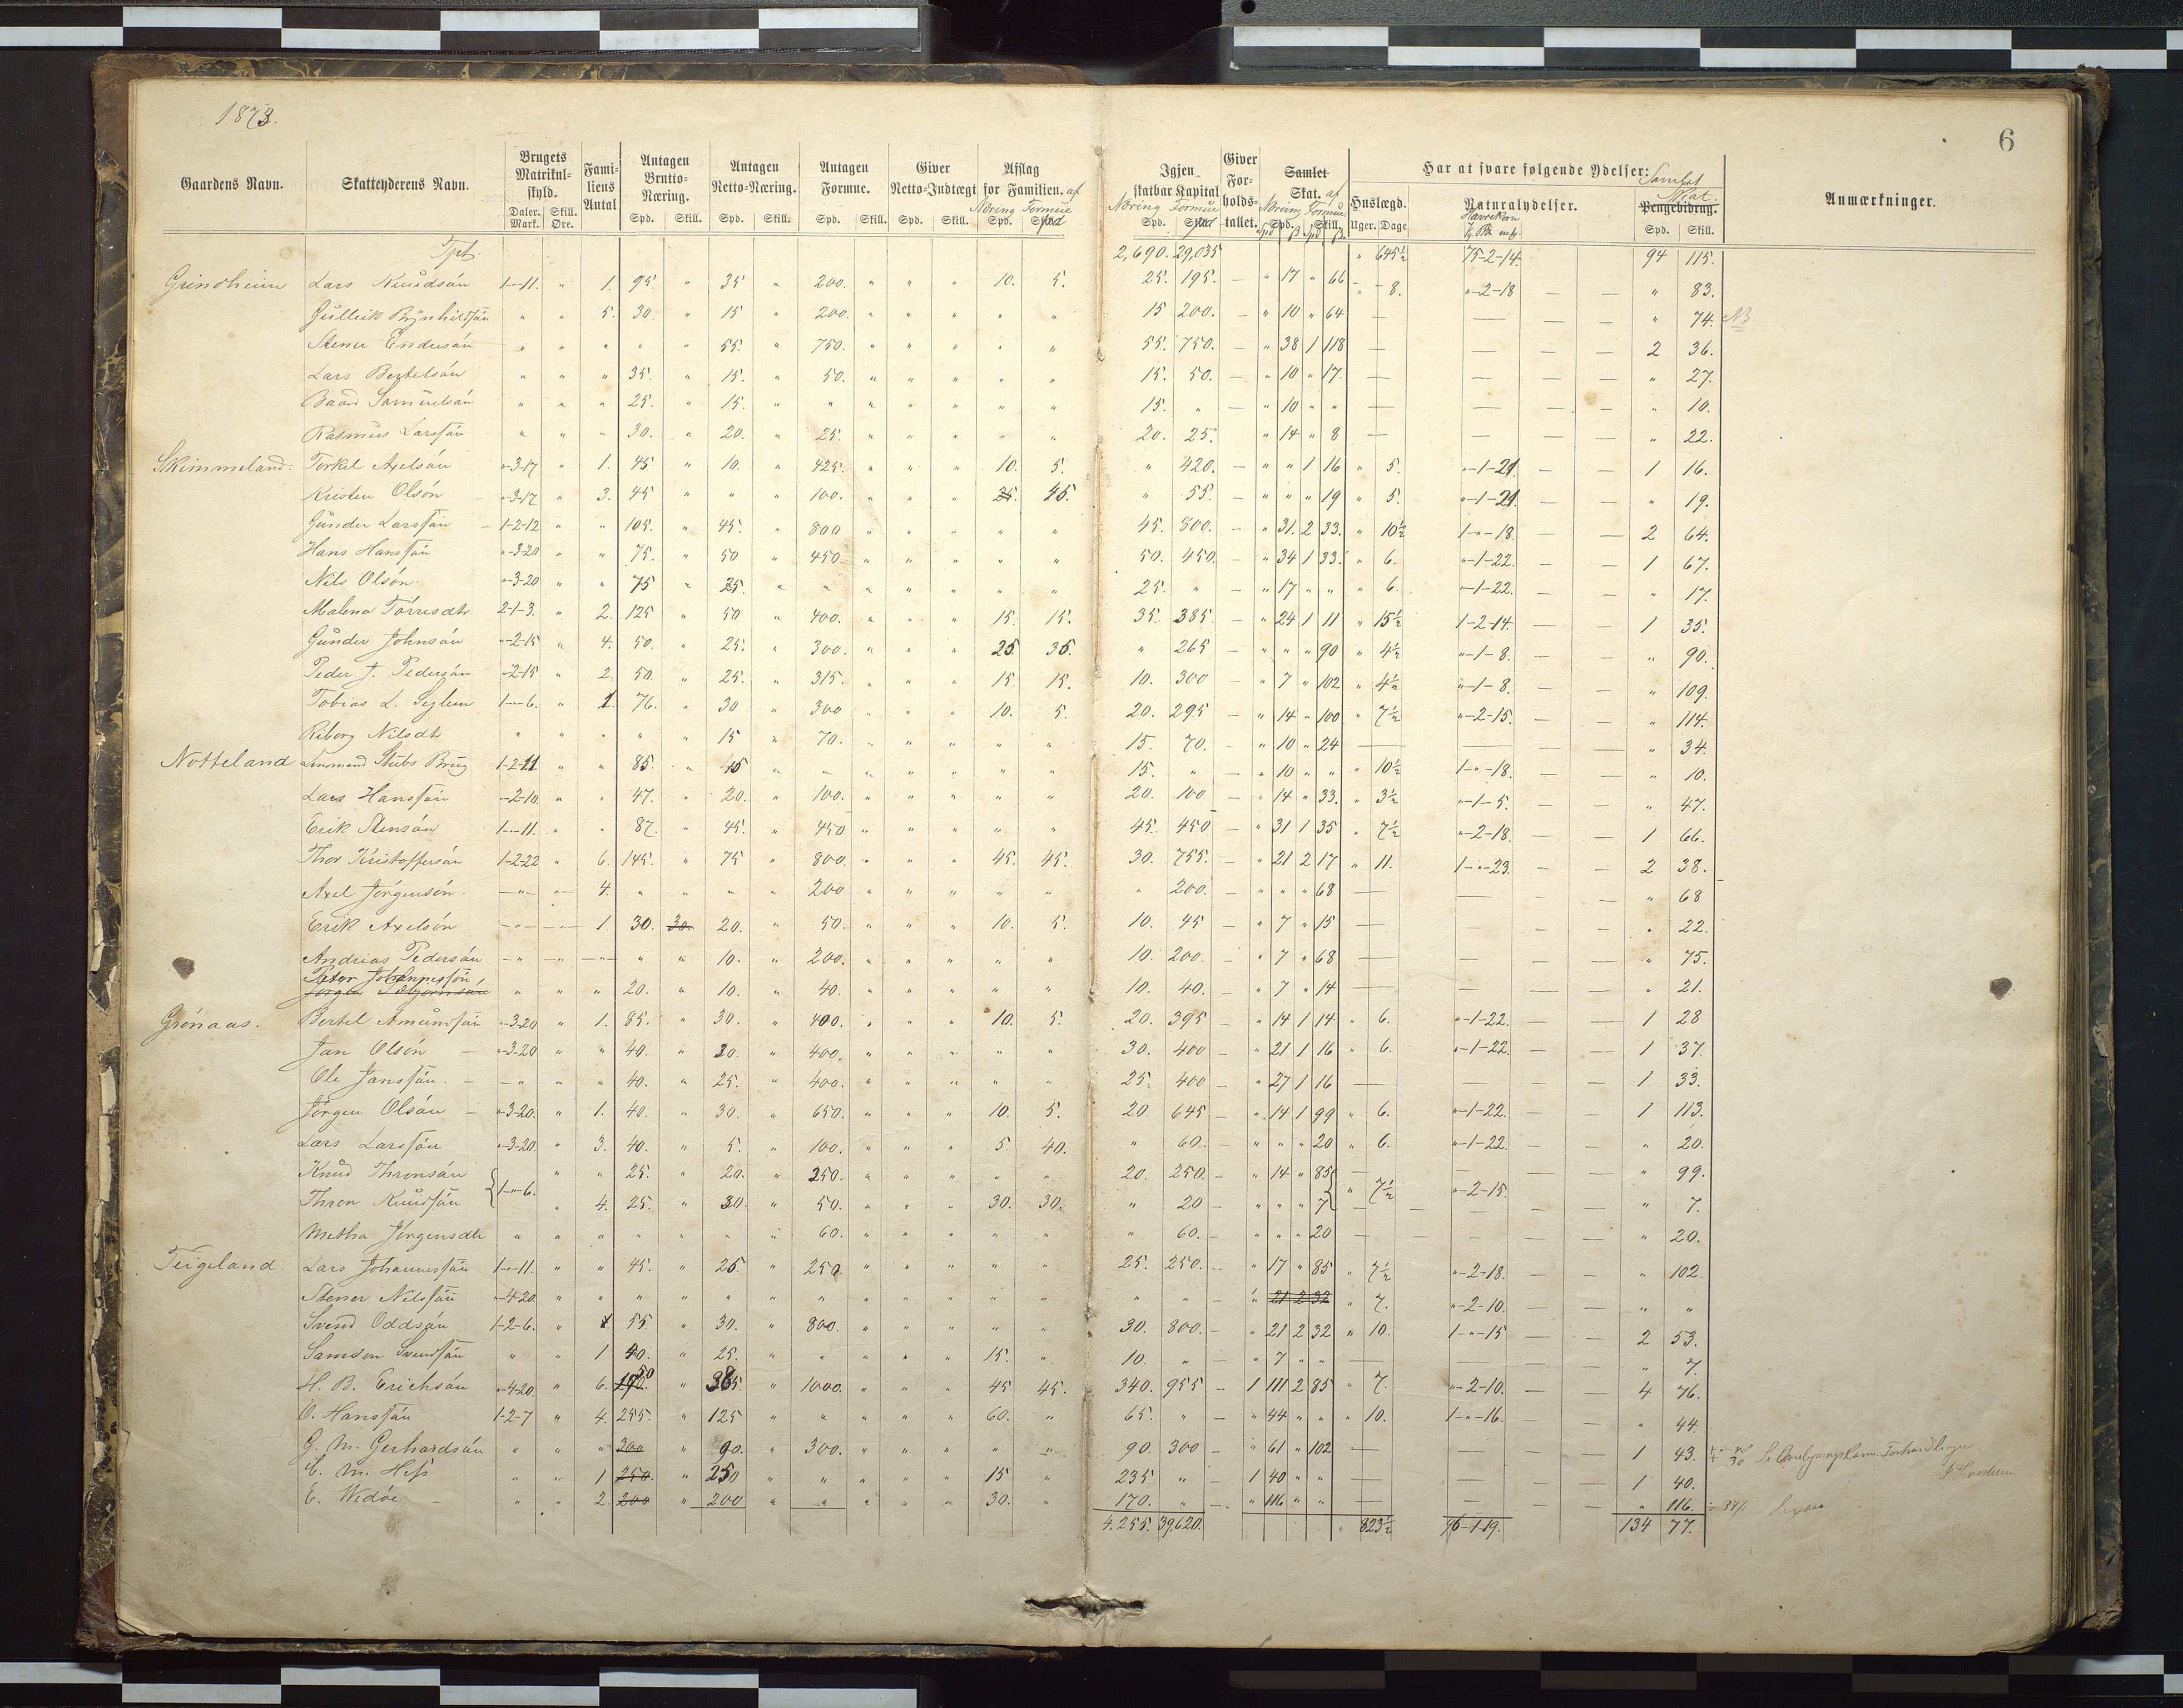 1873.
6
Gaardens Navn. Skatteyderens Navn. Brugets Matrikulskyld. Daler. Mark. Skill. Øre. Familiens Antal Antagen Brutto-Næring. Spd. Skill. Antagen Netto-Næring. Spd. Skill. Antagen Formue. Spd. Skill. Giver Netto-Indtægt Spd. Skill. Afslag for Familien. af Næring Formue Spd. Spd Igjen skatbar Kapital Næring Formue Spd. Spd Giver Forholdstallet. Samlet Skat. af Næring Formue Spd. ß Spd Skill. ß. Har at svare følgende Ydelser: Huslægd. Uger. Dage Naturalydelser. Havrekorn Samlet Skat. Pengebidrag. Spd. Skill. Anmærkninger.
Tpt. 2,690. 29,035 " 645½ 75-2-14. 94 115.
Grindheim Lars Knudsøn 1-"-11. " 1. 95. " 35 " 200. " " " 10. 5. 25. 195. - " 17 " 66 " 8. "-2-18 — — " 83.
Gulleik Brynhildsøn " " 5. 30 " 15 " 200. " " " " " 15 200. — " 10 " 64 — — — — " 74. NB.
Stener Endresøn " " " " " 55. " 750. " " " " " 55. 750. — " 38 1 118 — — — — 2 36.
Lars Bertelsøn " " " 35. " 15. " 50. " " " " " 15. 50. — " 10 " 17. — — — — " 27.
Baard Samuelsøn " " " 25. " 15. " " " " " " " 15. " — " 10 " " — — — — " 10.
Rasmus Larssøn " " " 30. " 20. " 25. " " " " " 20. 25. " 14 " 8 — — — — " 22.
Skimmeland. Torkel Axelsøn "-3-17 " 1. 45 " 10. " 425. " " " 10. 5. " 420. — " " 1 16 " 5. "-1-21 — — 1 16.
Kristen Olsøn "-3-17 " 3. 45 " " " 100. " " " 25. 45. " 55. — " " " 19 " 5. "-1-21. — — " 19.
Gunder Larssøn 1-2-12 " " 105. " 45. " 800 " " " " " 45. 800. — " 31. 2 33. " 10½ 1-"-18. — — 2 64.
Hans Hanssøn "-3-20 " " 75. " 50 " 450. " " " " " 50. 450. — " 34 1 33. " 6. "-1-22. — — 1 67.
Nils Olsøn. "-3-20 " " 75 " 25. " " " " " " " 25. " — " 17 " " " 6. "-1-22. — — " 17.
Malena Tørresdtr 2-1-3. " 2. 125 " 50 " 400. " " " 15. 15. 35. 385. — " 24 1 11 " 15½ 1-2-14. — — 1 35.
Gunder Johnsøn "-2-15 " 4. 50. " 25. " 300. " " " 25 35. " 265 — " " " 90 " 4½ "-1-8. — — " 90.
Peder J. Pedersøn "-2-15 " 2. 50. " 25. " 315. " " " 15. 15. 10. 300 — " 7 " 102 " 4½ "-1-8. — — " 109.
Tobias L. Seglem 1-"-6. " 1. 76. " 30 " 300 " " " 10. 5. 20. 295 — " 14 " 100 " 7½ "-2-15. — — " 114.
Reborg Nilsdtr " " " " " 15 " 70. " " " " " 15. 70. — " 10 " 24 — — — — " 34.
Notteland Stubs Brug 1-2-11 " " 85. " 15 " " " " " " " 15. " — " 10 " " " 10½ 1-"-18. — — " 10.
Lars Hanssøn "-2-10. " " 47. " 20. " 100. " " " " " 20. 100 — " 14 " 33. " 3½ "-1-5. — — " 47.
Erik Stensøn 1-"-11. " " 87. " 45. " 450 " " " " " 45. 450 — " 31 1 35 " 7½ "-2-18. — — 1 66.
Thor Kristoffersøn 1-2-22 " 6. 145. " 75 " 800. " " " 45. 45. 30. 755. — " 21 2 17 " 11. 1-"-23. — — 2 38.
Axel Jørgensøn. — " — 4. " " " " 200 " " " " " " 200. — " " " 68 — — — — " 68
Erik Axelsøn — " — 1. 30. 30. 20. " 50. " " " 10. 5. 10. 45 — " 7 " 15 — — — — " 22.
Andreas Pedersøn — " — " " 10. " 200. " " " " " 10. 200. — " 7 " 68 — — — — " 75.
Peter Johannessøn
Jørgen Thorbjørnsøn " " " 20. " 10. " 40. " " " " " 10. 40. — " 7 " 14 — — — — " 21.
Grønaas. Bertel Amundsøn "-3-20 " 1. 85. " 30. " 400. " " " 10. 5. 20. 395 — " 14 1 14 " 6. "-1-22. — — 1 28
Jan Olsøn — "-3-20 " " 40. " 30. " 400. " " " " " 30. 400 — " 21 1 16 " 6. "-1-22. — — 1 37.
Ole Janssøn. — " " " 40. " 25. " 400. " " " " " 25. 400 — " 27 1 16 — — — — 1 33.
Jørgen Olsøn — "-3-20. " 1. 40. " 30. " 650. " " " 10. 5. 20. 645 — " 14 1 99 " 6. "-1-22. — — 1 113.
Lars Larssøn "-3-20. " 3. 40. " 5. " 100. " " " 5 40. " 60. — " " " 20 " 6. "-1-22. — — " 20.
Knud Thronsøn " " 25. " 20. " 250. " " " " " 20. 250. — " 14 " 85 — — — — " 99.
Thron Knudsøn 1-"-6. " 4. 25. " 30. " 50. " " " 30. 30. " 20 — " " " 7 " 7½ "-2-15. — — " 7.
Metha Jørgensdtr " " " " " " " 60. " " " " " " 60. — " " " 20 — — — — " 20.
Teigeland. Lars Johannessøn 1-"-11. " " 45. " 25. " 250. " " " " " 25. 250. — " 17 " 85 " 7½ "-2-18. — — " 102.
Stener Nilssøn "-4-20. " " " " " " " " " " " " " " — " 21 2 32 " 7. "-2-10. — — " "
Svend Oddsøn 1-2-6. " 1 55. " 30. " 800. " " " " " 30. 800. — " 21 2 32 " 10. 1-"-15 — — 2 53.
Samson Svendsøn " " 1 40. " 25. " " " " " 15. " 10. " — " 7 " " — — — — " 7.
H. B. Erichsøn "-4-20. " 6. " 385 " 1000. " " " 45 45. 340. 955 — 1 111 2 85 " 7. "-2-10. — — 4 76.
O. Hanssøn 1-2-7 " 4. 255. " 125 " " " " " 60. " 65. " — " 44 " " " 10. 1-"-16. — — " 44.
G. M. Gerhardsøn " " " 300 " 90. " 300. " " " " " 90. 300 — " 61 " 102 — — — — 1 43.
E. M. Hess " " 1 250. " 250 " " " " " 15 " 235 " — 1 40 " " — — — — 1 40.
E. Wedøe — " " 2. 200 " 200 " " " " " 30. " 170. " — " 116 " " — — — — " 116.
4.255. 39,620. " 823½ 96-1-19. 134 77.